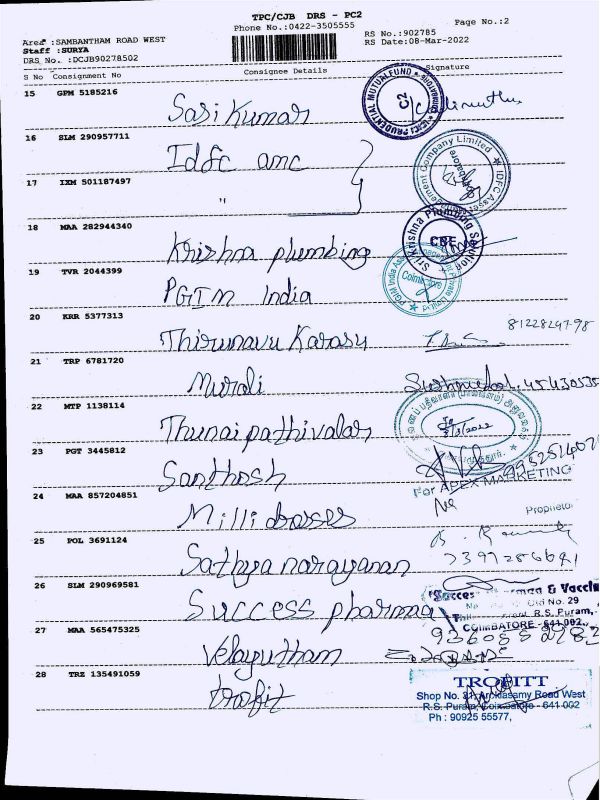 TPC/CJB DRS - PC2
Phone No.:0422-3505555
Page No.:2
Area :SAMBANTHAM ROAD WEST
Staff :SURYA
DRS No. :DCJB90278502
RS No.:902785
RS Date:08-Mar-2022
S No Consignment No Consignee Details Signature
15 GPM 5185216
Sasikumar
ICICI PRUDENTIAL MUTUAL FUND
16 SLM 290957711
Idfc amc
IDFC Asset Management Company Limited
17 IXM 501187497
"
18 MAA 282944340
Krishna plumbing
Sri Krishna Plumbing
CBE
19 TVR 2044399
PGIM India
PGIM India
Coimbatore
20 KRR 5377313
Thirunavu Karasu
21 TRP 6781720
Murali
22 MTP 1138114
Thunai pathivalar
23 PGT 3445812
Santhosh
For APEX MARKETING
Proprietor
24 MAA 857204851
Milli dresses
25 POL 3691124
Sathya narayanan
26 SLM 290969581
Success pharma
Old No. 29
R.S. Puram,
COIMBATORE - 641 002.
27 MAA 565475325
Velayutham
28 TRZ 135491059
trofit
TROFITT
Shop No. 31, Arokiasamy Road West
R.S. Puram, Coimbatore - 641 002
Ph : 90925 55577,